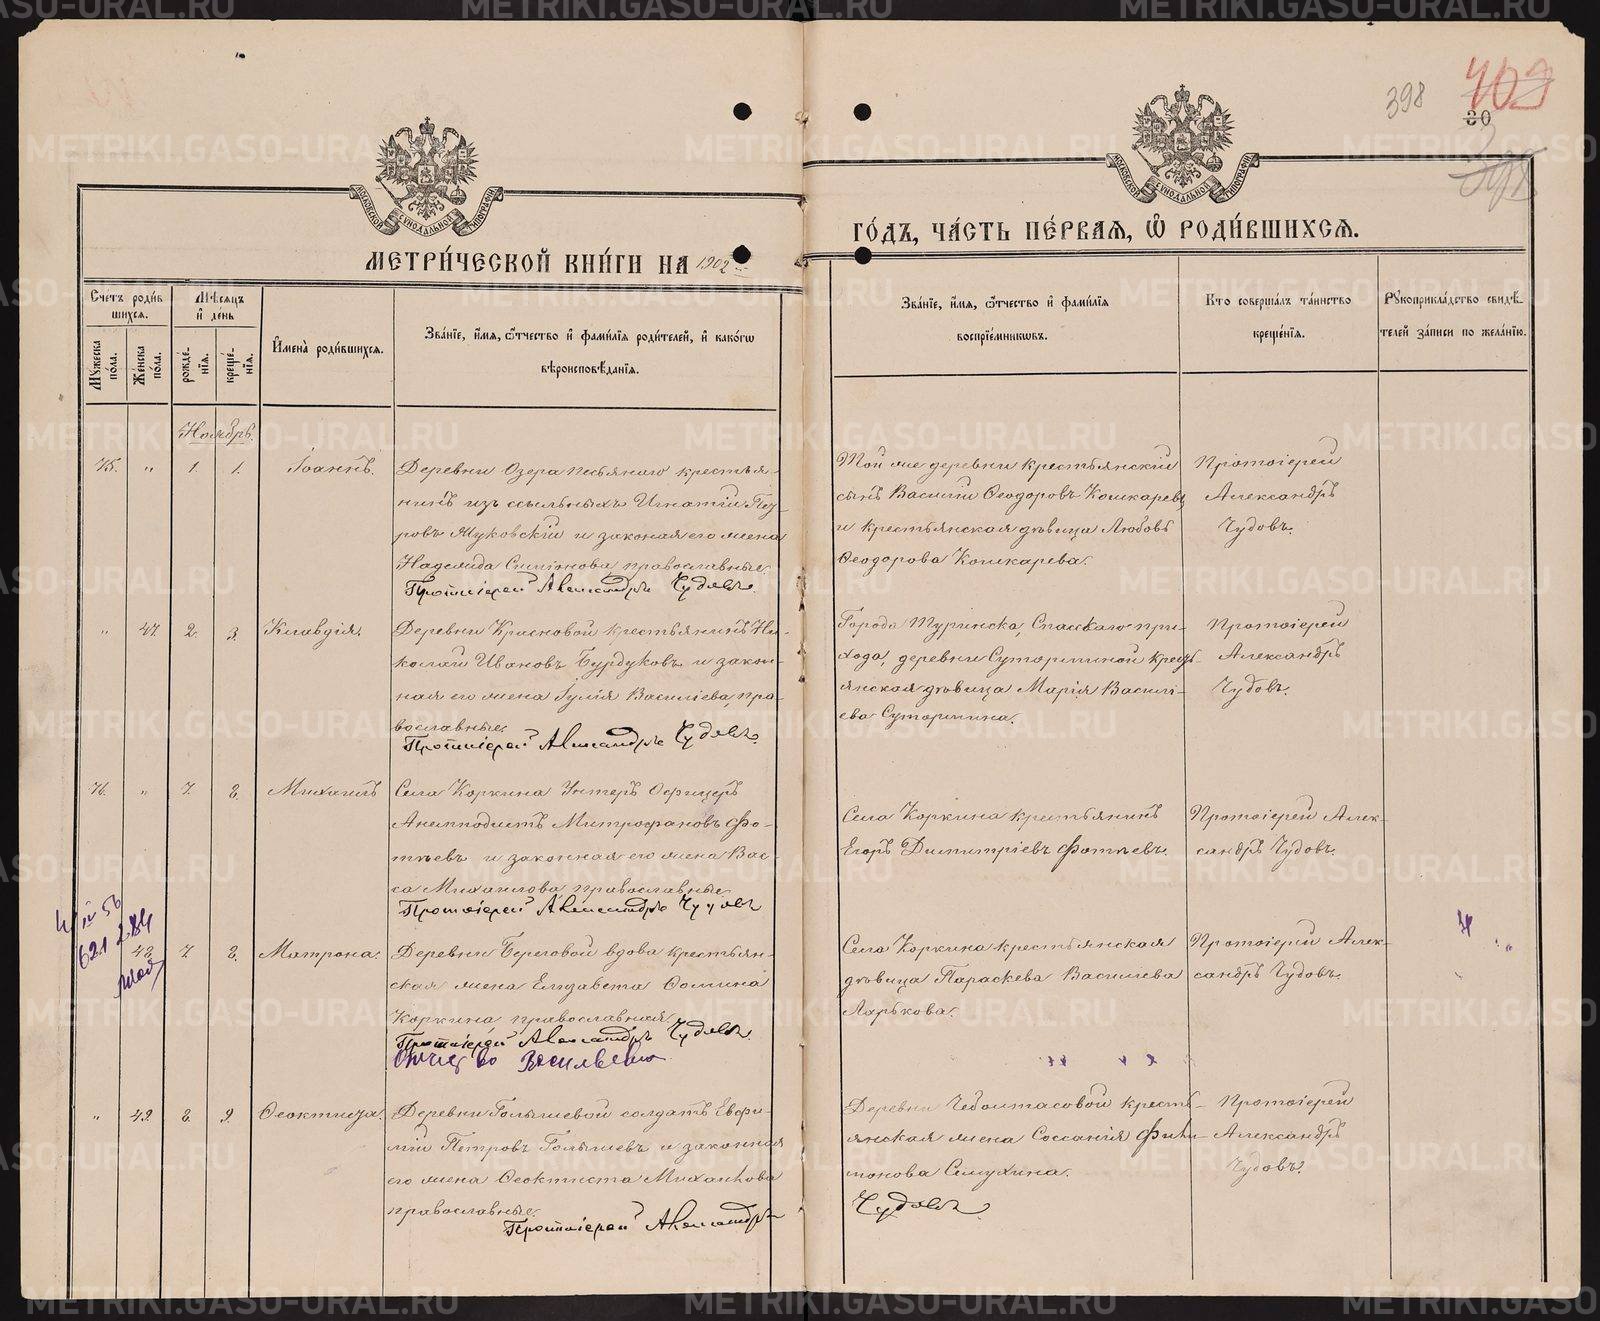 398
403
30
МОСКОВСКОЙ СѴНОДАЛЬНОЙ ТИПОГРАФІИ
МОСКОВСКОЙ СѴНОДАЛЬНОЙ ТИПОГРАФІИ
МЕТРИ́ЧЕСКОЙ КНИ́ГИ НА 1902
ГО́ДЪ, ЧА́СТЬ ПЕ́РВАѦ, Ѡ҆ РОДИ́ВШИХСѦ.
Сче́тъ роди́в
шихсѧ.
Мꙋ́жеска по́ла.
Же́нска по́ла.
Мѣ́сѧцъ
и҆ де́нь
рожде́-
нїѧ.
креще́-
нїѧ.
И҆мена̀ роди́вшихсѧ.
Зва́нїе, и҆́мѧ, ѻ҆́тчество и҆ фами́лїѧ роди́телей, и҆ како́гѡ
вѣроисповѣ́данїѧ.
Зва́нїе, и҆́мѧ, ѻ҆́тчество и҆ фами́лїѧ
воспрїе́мникѡвъ.
Кто̀ соверша́лъ та́инство
креще́нїѧ.
Рꙋкоприкла́дство свидѣ́-
телей за́писи по жела́нїю.
Ноябрь.
75. „ 1. 1. Іоаннъ.
Деревни Озера Песьянаго крестья-
нинъ изъ ссыльныхъ Игнатій Пет-
ровъ Жуковскій и законая его жена
Надежда Симіонова, православные.
Протоіерей Александръ Чудовъ.
Той же деревни крестьянскій
сынъ Василій Ѳеодоровъ Кошкаревъ
и крестьянская дѣвица Любовь
Ѳеодорова Кошкарева.
Протоіерей
Александръ
Чудовъ.
„ 47. 2. 3. Клавдія.
Деревни Красновой крестьянинъ Ни-
колай Ивановъ Бурдуковъ и закон-
ная его жена Іулія Василіева, пра-
вославные.
Протоіерей Александръ Чудовъ.
Города Туринска, Спасскаго при-
хода, деревни Сутурминой кресть-
янская дѣвица Марія Василі-
ева Сутормина.
Протоіерей
Александръ
Чудовъ.
76. „ 7. 8. Михаилъ
Села Коркина Унтеръ Офицеръ
Анемподистъ Митрофановъ Фо-
тѣевъ и законная его жена Вас-
са Михаилова православные.
Протоіерей Александръ Чудовъ
Села Коркина крестьянинъ
Егоръ Димитріевъ Фотѣевъ.
Протоіерей Алек-
сандръ Чудовъ.
4/IV 56
621284
„ 48. 7. 8. Матрона.
Деревни Береговой вдова крестьян-
ская жена Елизавета Ѳомина
Коркина православная.
Протоіерей Александръ Чудовъ.
Отчество Васильевна.
Села Коркина крестьянская
дѣвица Параскева Василиева
Ларькова.
Протоіерей Алек-
сандръ Чудовъ.
„ 49. 8. 9. Ѳеоктиста.
Деревни Голышевой солдатъ Евфи-
мій Петровъ Голышевъ и законная
его жена Ѳеоктиста Михаилова
православные.
Протоіерей Александръ
Деревни Чебоктасовой кресть-
янская жена Соссанія Фили-
монова Семухина.
Чудовъ.
Протоіерей
Александръ
Чудовъ.
METRIKI.GASO-URAL.RU